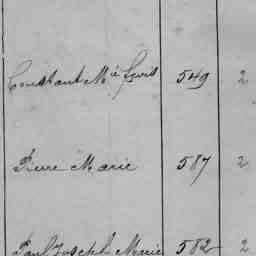 Constant Mie Louis 549 2
Pierre Marie 587 2
Paul Joseph Marie 582 2